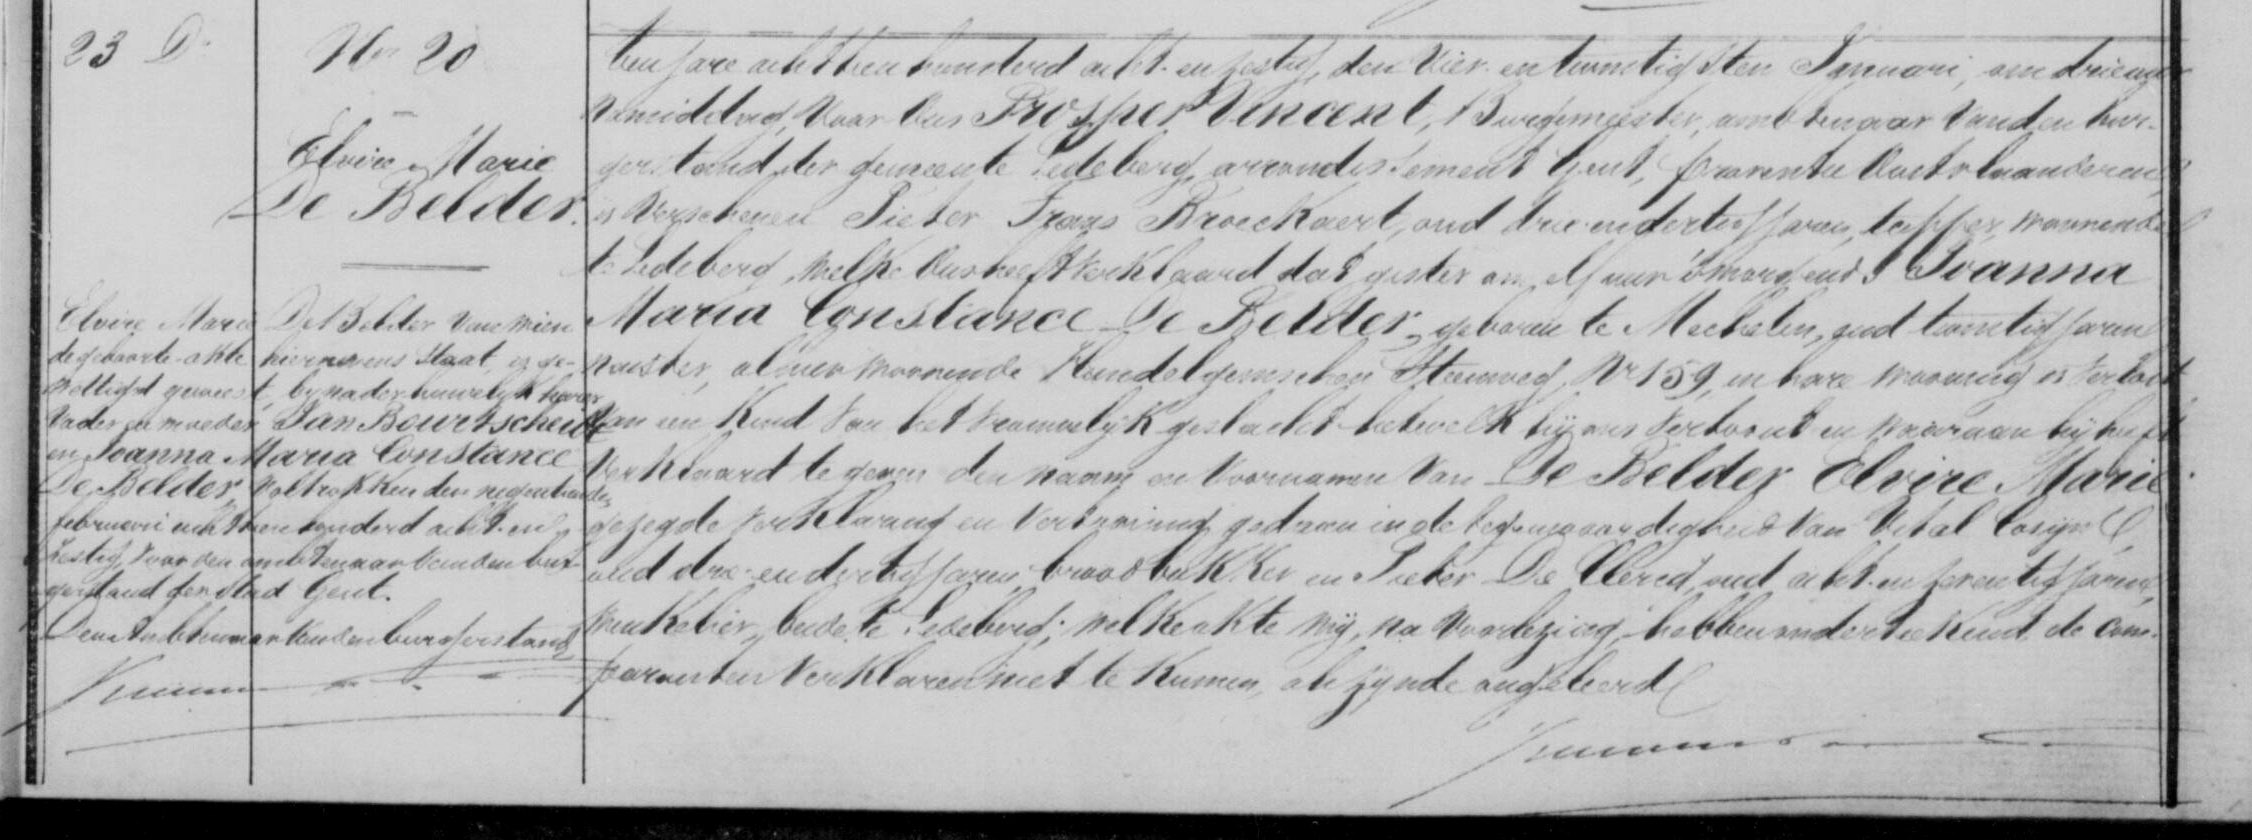 23 D.
Nr 20
Elvire Marie
De Belder.
Elvire Marie De Belder van wien
de geboorte-akte hiernevens staat, is ge-
wettigd geweest, by nader huwelyk harer
vader en moeder Jan Bourtscheidt
en Joanna Maria Constance
De Belder, voltrokken den negentienden
februarii achttien honderd acht-en-
zestig, voor den ambtenaar van den bur-
gerstand der stad Gent.
Den Ambtenaar van den burgerstand
Ten jare achttien honderd acht-en-zestig, den vier-en-twintigsten Januari, om drie uren
namiddag, voor ons Prosper Vincent, Burgemeester, ambtenaar van den bur-
gerstand der gemeente Ledeberg, arrondissement Gent, provintie Oostvlaanderen,
is verschenen Pieter Frans Broeckaert, oud drie-en-dertig jaren, tapper, woonende
te Ledeberg, welke ons heeft verklaard dat gister om elf uur 's morgends Joanna
Maria Constance De Belder, geboren te Mechelen, oud twintig jaren
naaister, alhier woonende Hundelgemschen Steenweg, Nr 159, in hare wooning is verlost
van een kind van het vrouwelyk geslacht hetwelk hij ons vertoont en waaraan hij heeft
verklaard te geven den naam en voornamen van De Belder Elvire Marie.
gezegde verklaring en vertooning gedaan in de tegenwoordigheid van Vital Cosijn
oud drie-en-dertig jaren, broodbakker en Pieter De Clercq, oud acht-en-zeventig jaren,
winkelier, beide te Ledeberg; welke akte wij, na voorlezing, hebben onderteekend, de com-
paranten verklaren niet te kunnen, als zynde ongeleerd